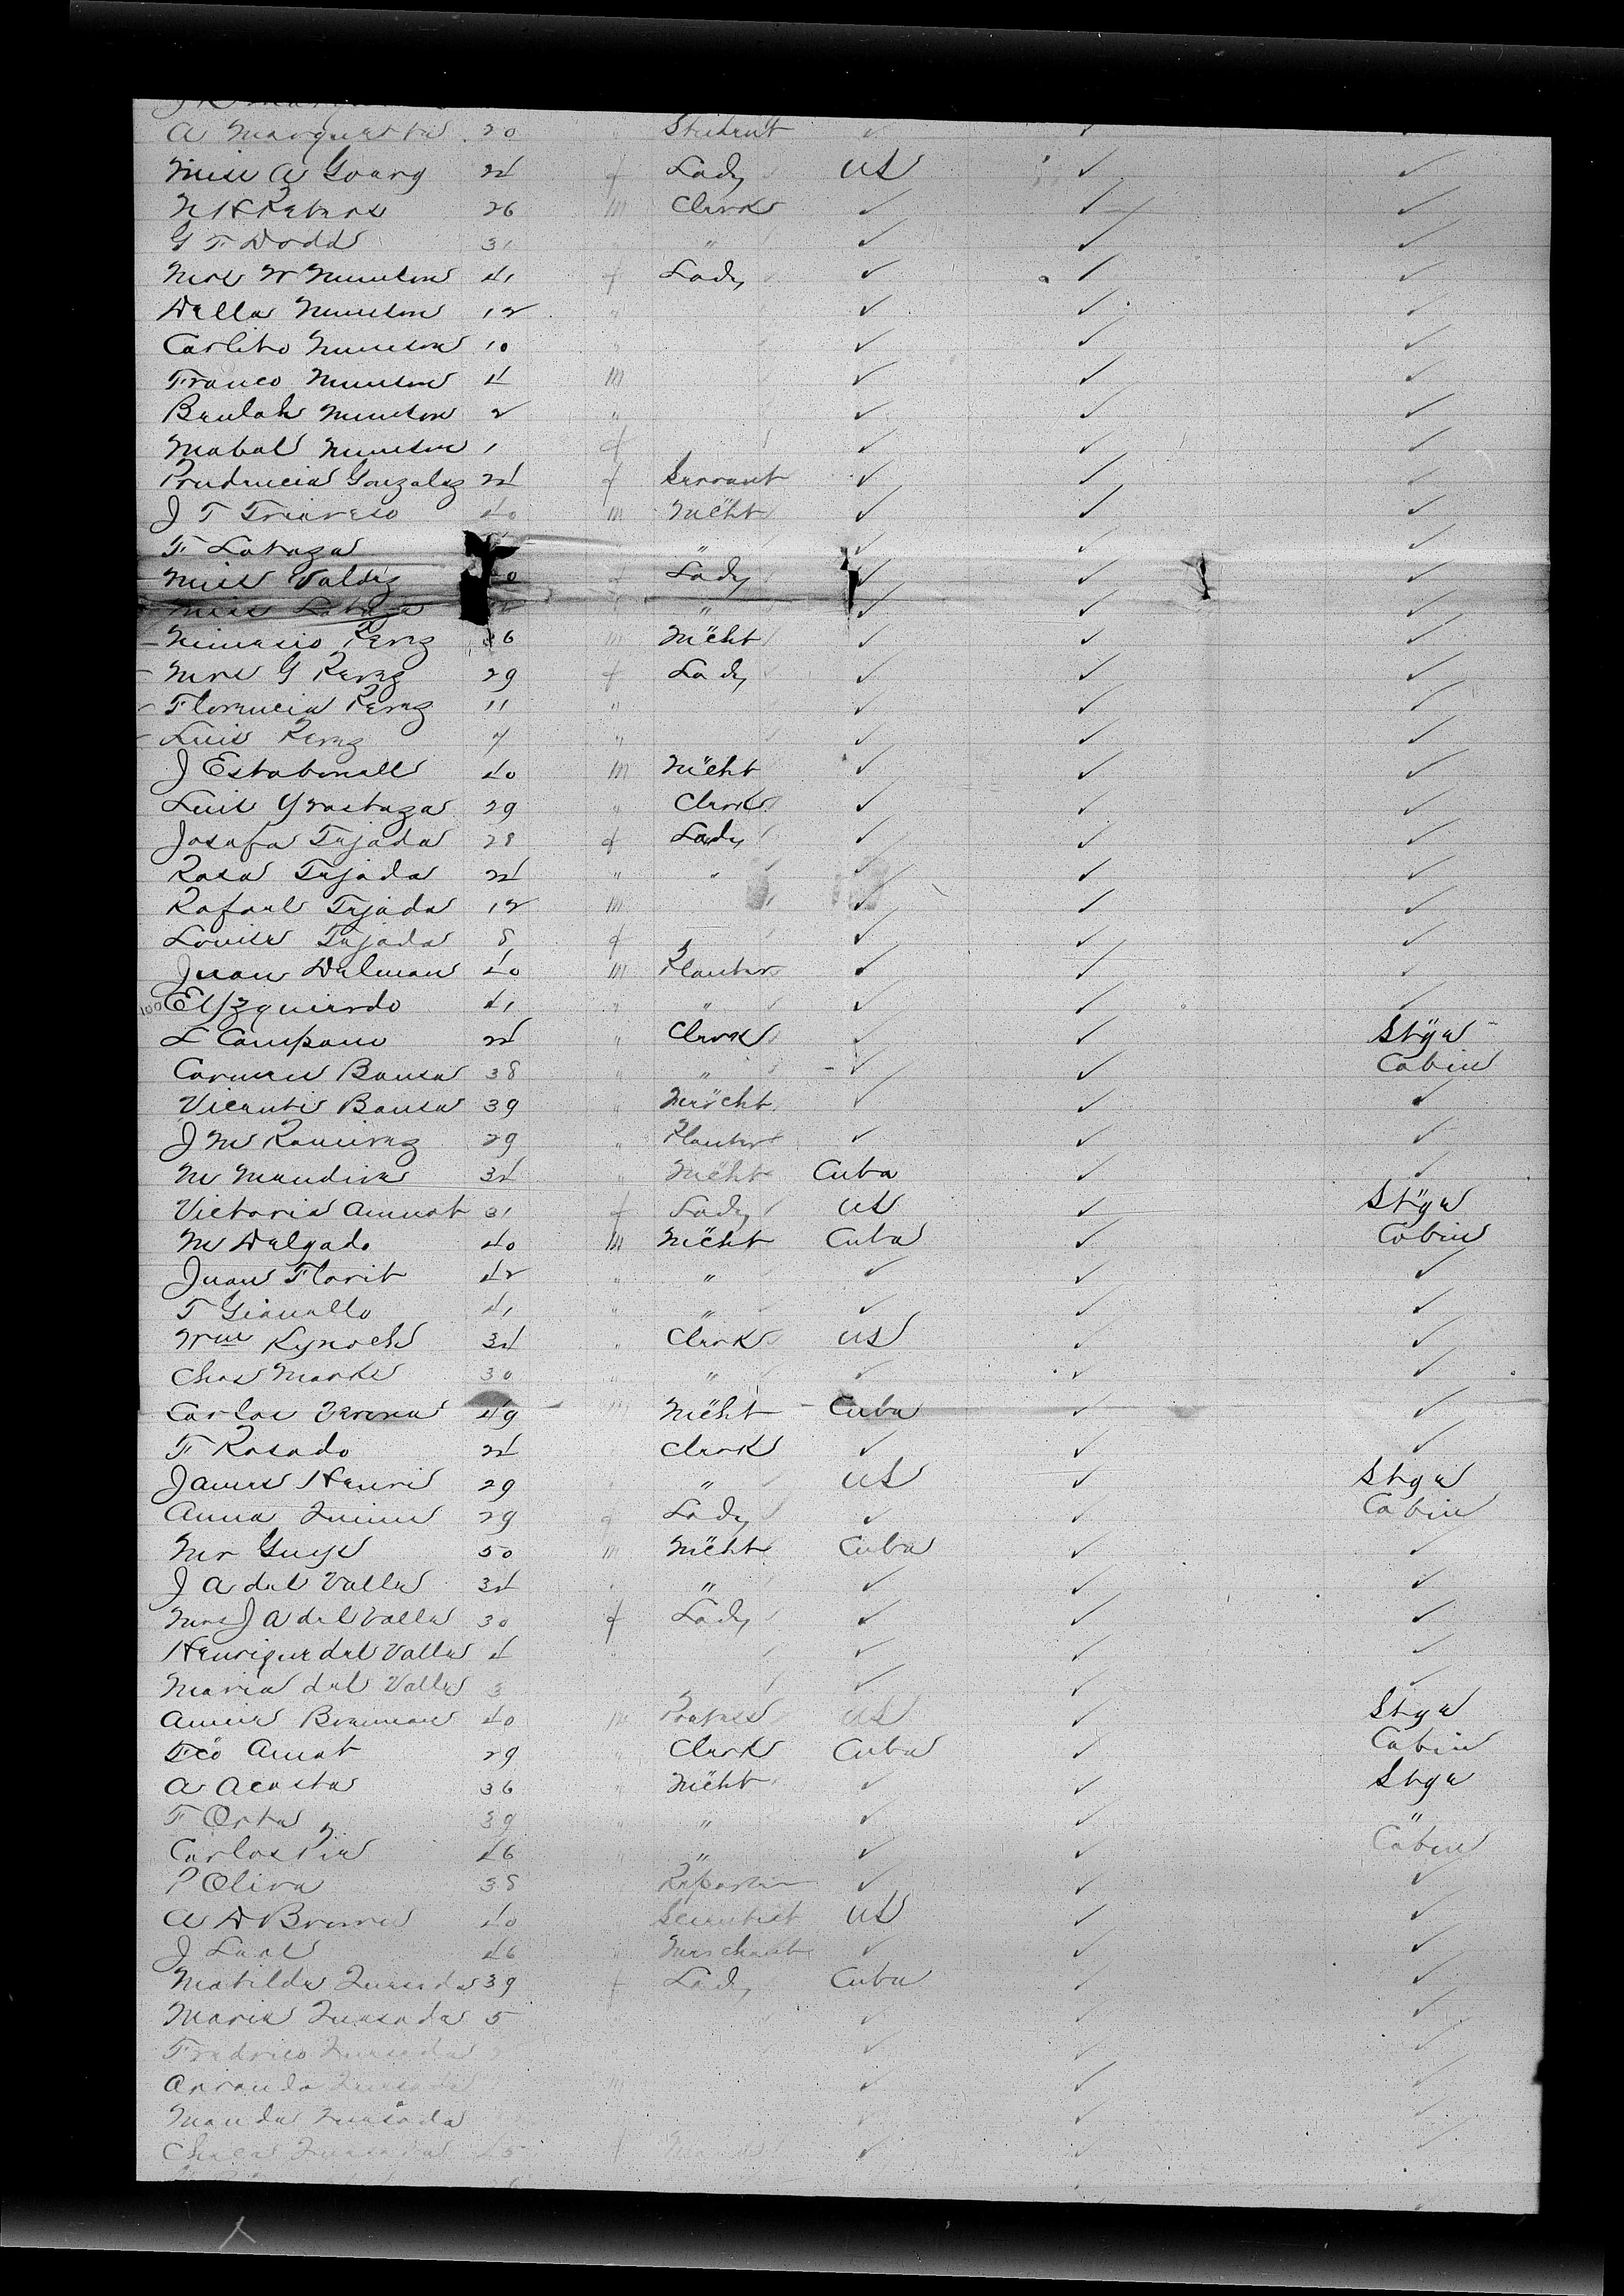 A Marquette 20 " Student ✓ ✓ ✓
Miss A Young 24 f Lady US ✓ ✓
N H Peters 26 m Clerk ✓ ✓ ✓
G F Dodd 31 " ✓ ✓ ✓
Mrs W Munson 41 f Lady ✓ ✓ ✓
Della Munson 12 " ✓ ✓ ✓
Carlito Munson 10 " ✓ ✓ ✓
Franco Munson 4 m ✓ ✓ ✓
Beulah Munson 2 " ✓ ✓ ✓
Mabel Munson 1 f ✓ ✓ ✓
Prudencia Gonzalez 24 f Servant ✓ ✓ ✓
J T 40 m Mcht ✓ ✓ ✓
F Lataza " ✓ ✓ ✓
Miss Valdez Lady ✓ ✓ ✓
Miss Lataza " ✓ ✓ ✓
Nimesio Perez 36 m Mcht ✓ ✓ ✓
Mrs G Perez 29 f Lady ✓ ✓ ✓
Florencia Perez 11 " ✓ ✓ ✓
Luis Perez 7 " ✓ ✓ ✓
J 40 m Mcht ✓ ✓ ✓
Luis 29 " Clerk ✓ ✓ ✓
Josefa Tejada 28 f Lady ✓ ✓ ✓
Rosa Tejada 24 " " ✓ ✓ ✓
Rafael Tejada 12 m ✓ ✓ ✓
Louise Tejada 8 f ✓ ✓ ✓
Juan Delman 40 m Planter ✓ ✓ ✓
100 E Yzquierdo 41 " " ✓ ✓ ✓
L Campano 24 " Clerk ✓ ✓ Stge
Carmen Bausa 38 " " ✓ ✓ Cabin
Vicente Bausa 39 " Mercht ✓ ✓ ✓
J M Ramirez 29 " Planter ✓ ✓ ✓
M Mendive 34 " Mcht Cuba ✓ ✓
Victoria Amnat 31 f Lady US ✓ Stge
M Delgado 40 m Mcht Cuba ✓ Cabin
Juan Florit 42 " " ✓ ✓ ✓
T 41 " " ✓ ✓ ✓
Wm Kynoch 34 " Clerk US ✓ ✓
Chas Marks 30 " " ✓ ✓ ✓
Carlos 49 m Mcht Cuba ✓ ✓
F Rosado 24 Clerk ✓ ✓ ✓
James Henri 29 " " US ✓ Stge
Anna 29 f Lady ✓ ✓ Cabin
Mr Guye 50 m Mcht Cuba ✓ ✓
J A del Valle 34 " " ✓ ✓ ✓
Mrs J A del Valle 30 f Lady ✓ ✓ ✓
Henrique del Valle 4 " ✓ ✓ ✓
Maria del Valle 3 ✓ ✓ ✓
Annie Brennan 40 US ✓ Stge
Fco Amat 29 " Clerk Cuba ✓ Cabin
A Acosta 36 " Mcht ✓ ✓ Stge
F Orta 39 " " ✓ ✓ "
Carlos Pie 46 " " ✓ ✓ Cabin
P Oliva 38 " ✓ ✓ ✓
A D Brown 40 Scientist US ✓ ✓
J 46 " Merchant ✓ ✓ ✓
Matilda Quesada 39 f Lady Cuba ✓ ✓
Maria Quesada 5 ✓ ✓ ✓
Fredrico Quesada ✓ ✓ ✓
Armando Quesada ✓ ✓ ✓
Quesada ✓ ✓
Quesada ✓ ✓ ✓